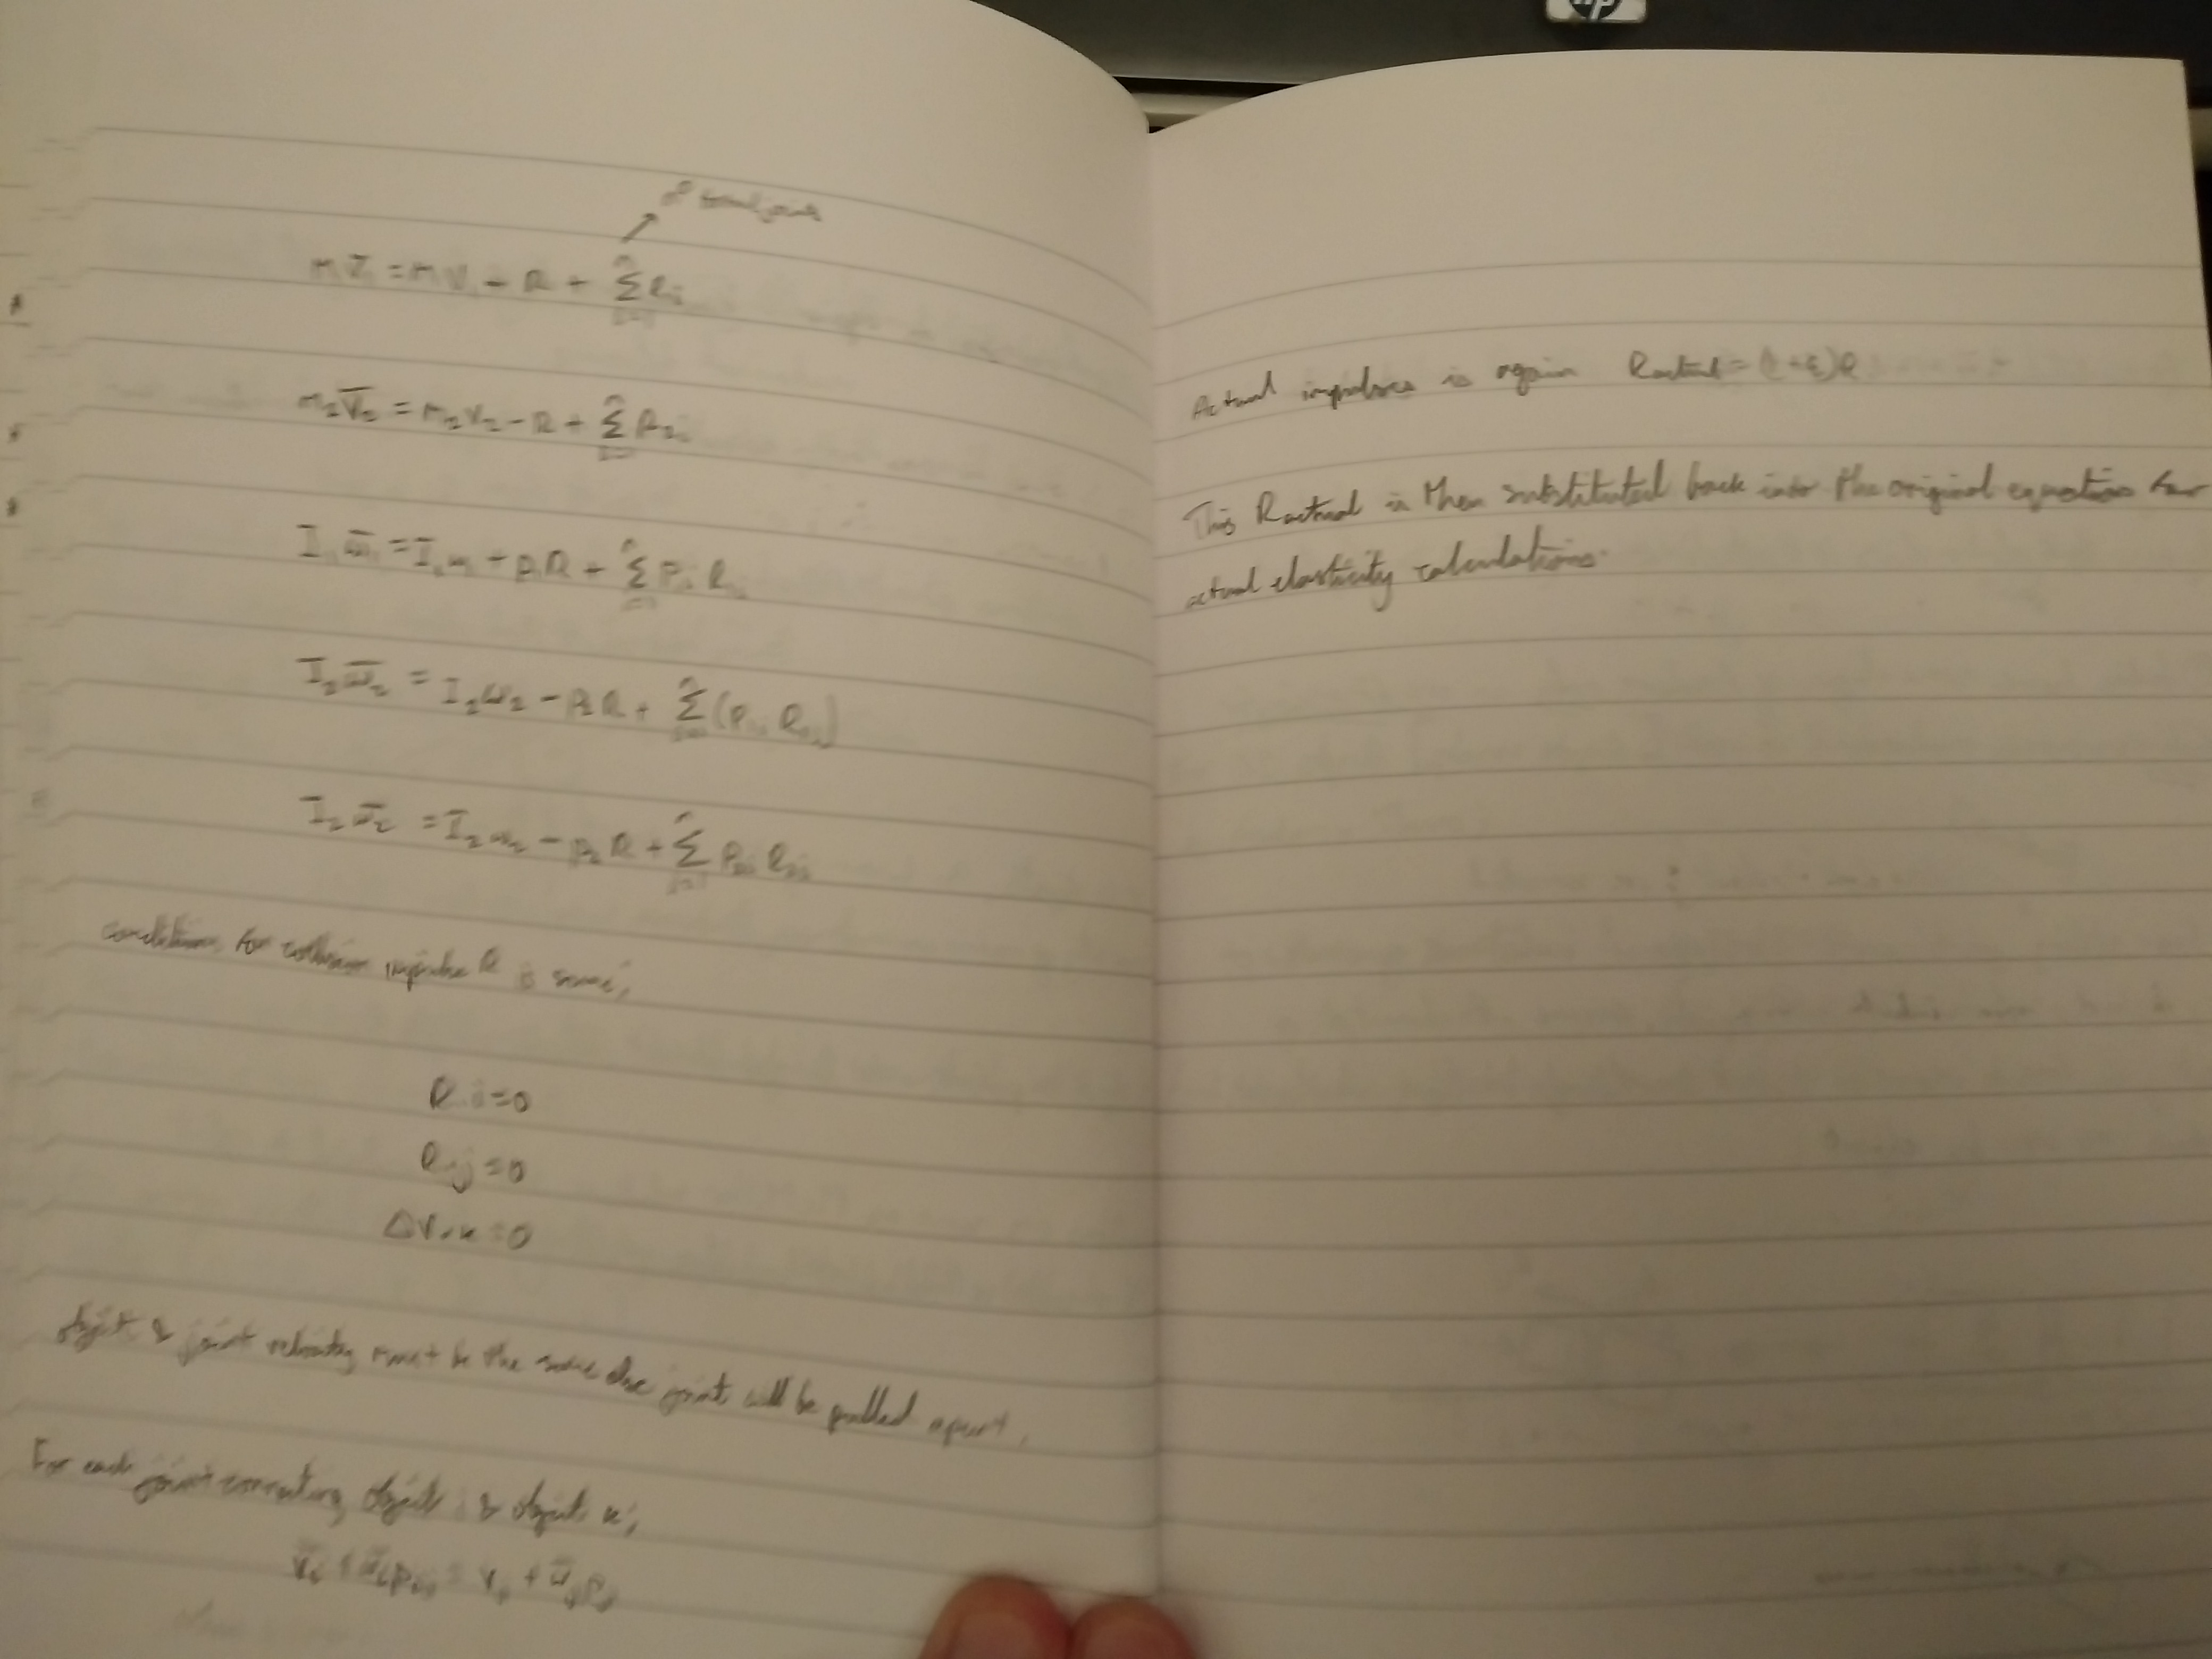 hp
m V̄ = m V₁ - R + Σ Rᵢ
m₂V̄₂ = m₂V₂ - R + Σ R₂ᵢ
I₁ω̄₁ = I₁ω₁ + p₁R + Σ P R
I₂ω̄₂ = I₂ω₂ - p₂R + Σ (P R₂ᵢ)
I₂ω̄₂ = I₂ω₂ - p₂R + Σ P₂ᵢ R₂ᵢ
conditions for collision impulse R is same,
R.i=0
R.j=0
ΔV.k=0
object & joint velocity must be the same else joints will be pulled apart.
For each joint connecting object i & object k,
Actual impulse is again Ractual = (1+ε)R
This Ractual is then substituted back into the original equation for
actual elasticity calculations.